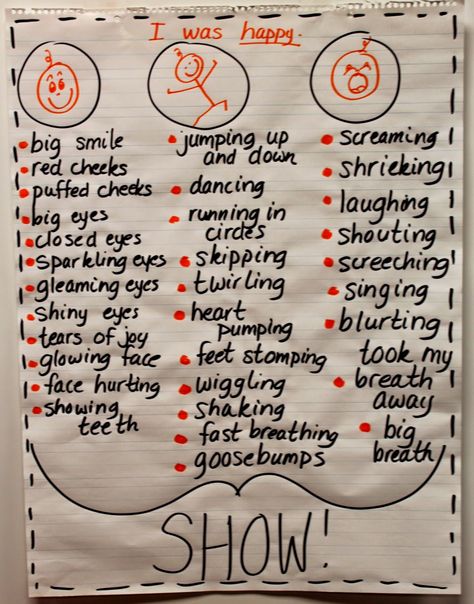 I was happy.
big smile
red cheeks
puffed cheeks
big eyes
closed eyes
sparkling eyes
gleaming eyes
shiny eyes
tears of joy
glowing face
face hurting
showing
teeth
jumping up
and down
dancing
running in
circles
skipping
twirling
heart
pumping
feet stomping
wiggling
shaking
fast breathing
goosebumps
screaming
shrieking
laughing
shouting
screeching
singing
blurting
took my
breath
away
big
breath
SHOW!